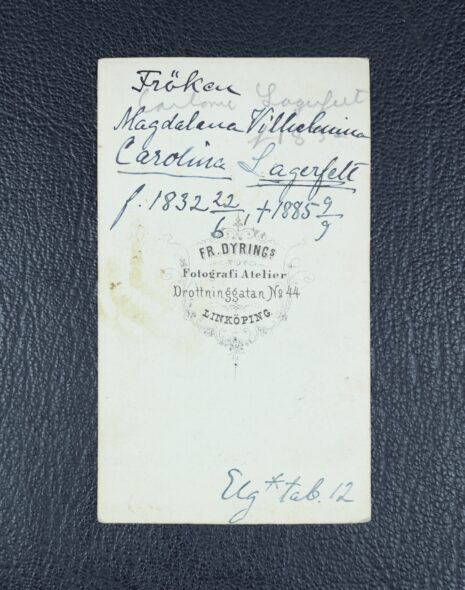 Fröken
Lagerfelt
Magdalena Vilhelmina
Carolina Lagerfelt
f. 1832 22/6, + 1885 9/9
FR. DYRINGS
Fotografi Atelier
Drottninggatan No 44
LINKÖPING
Elg * tab. 12